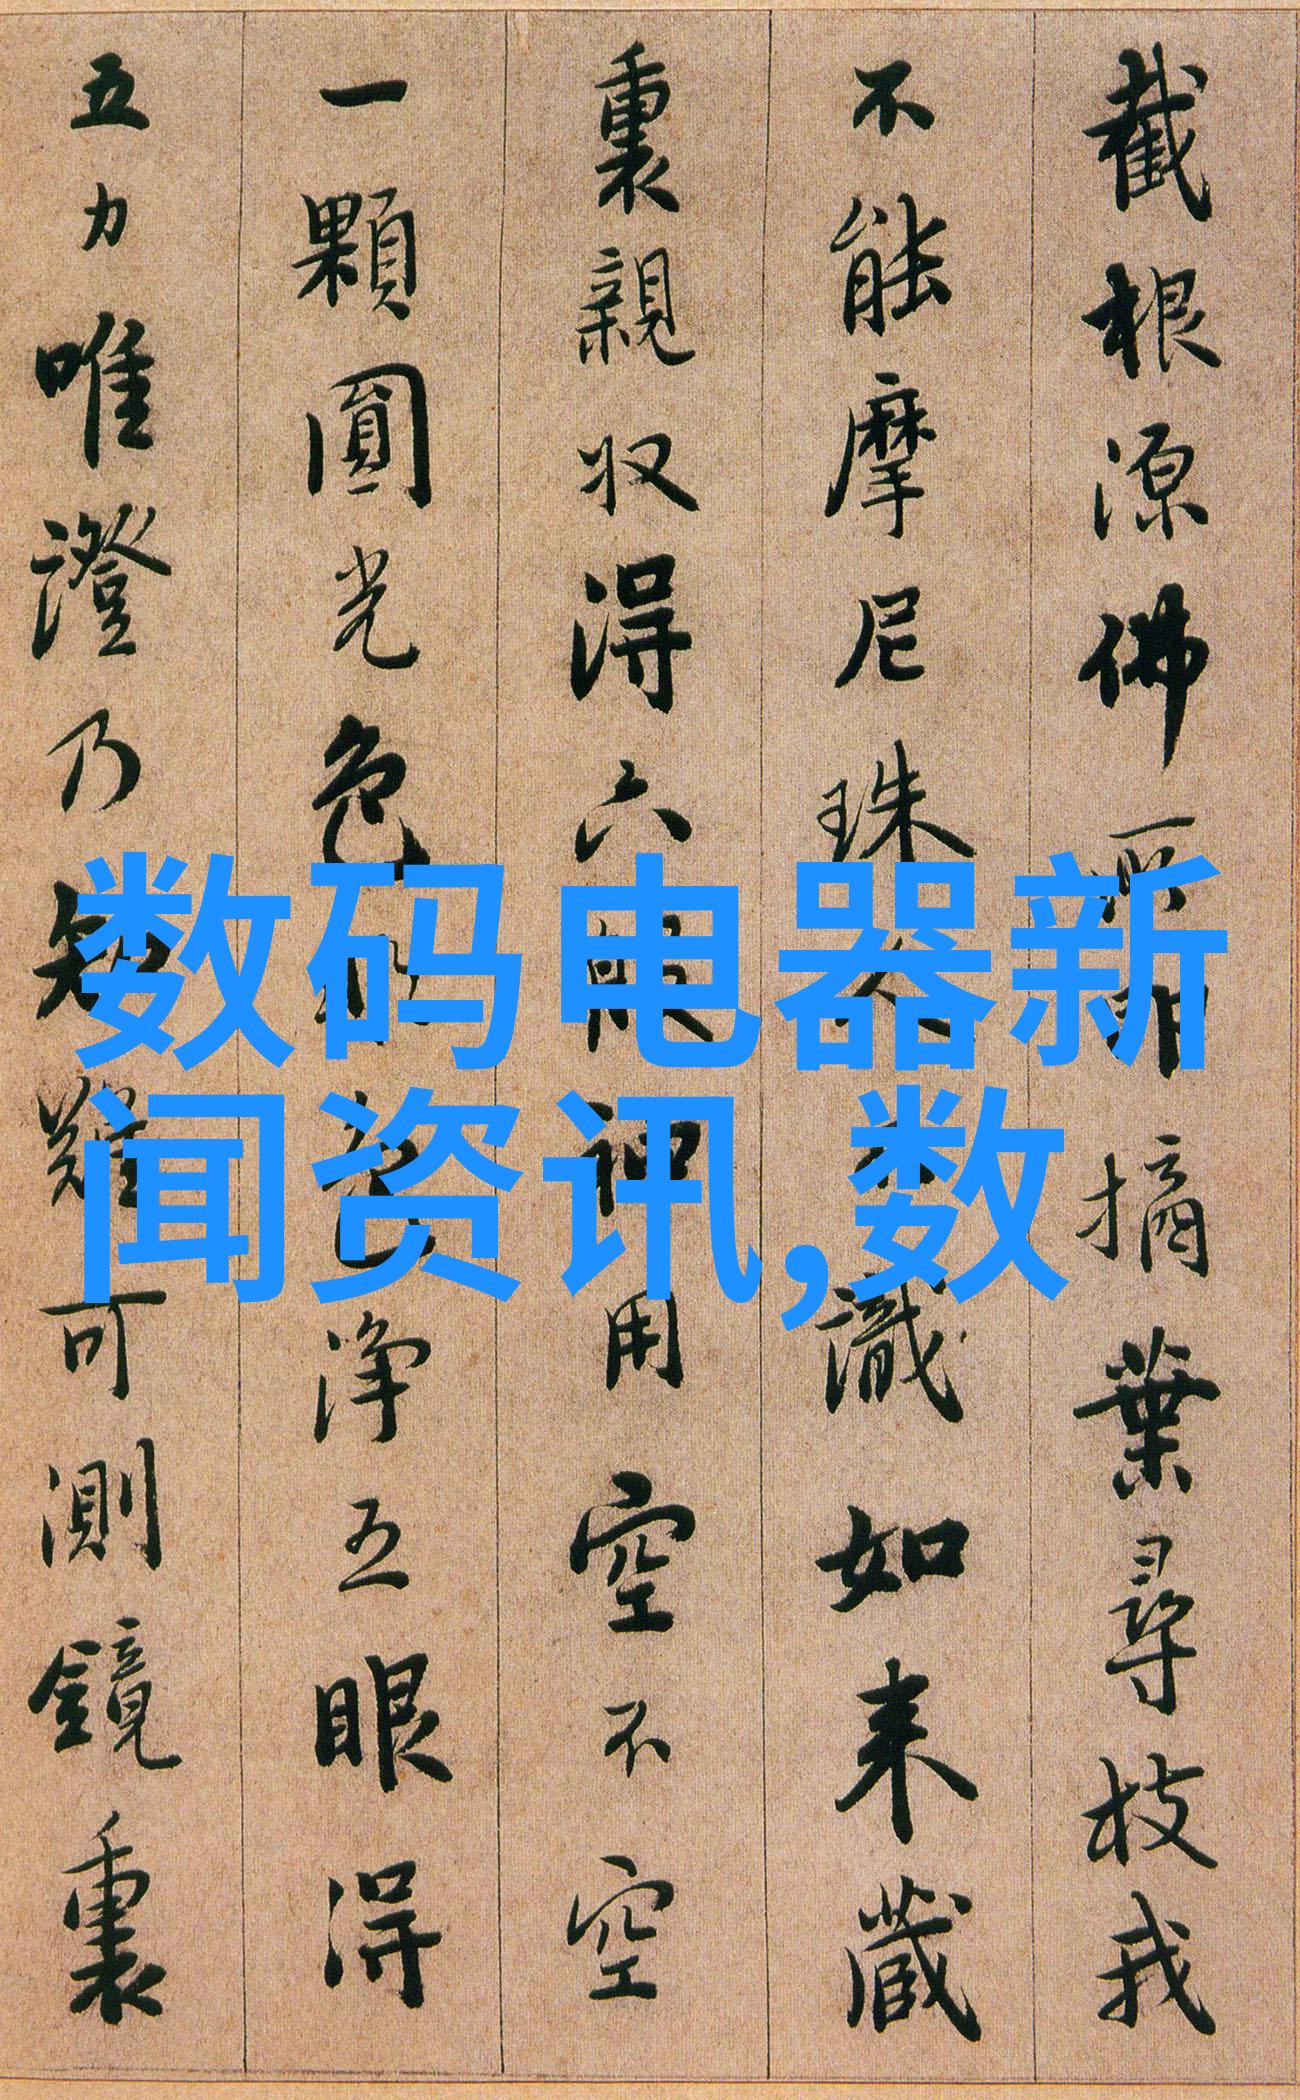 截根源佛所印摘葉尋枝我
不能摩尼珠人不識如来藏
裏親収得六般神用空不空
一顆圓光色非色淨五眼得
五力唯證乃知難可測鏡裏
数码电器新
闻资讯,数